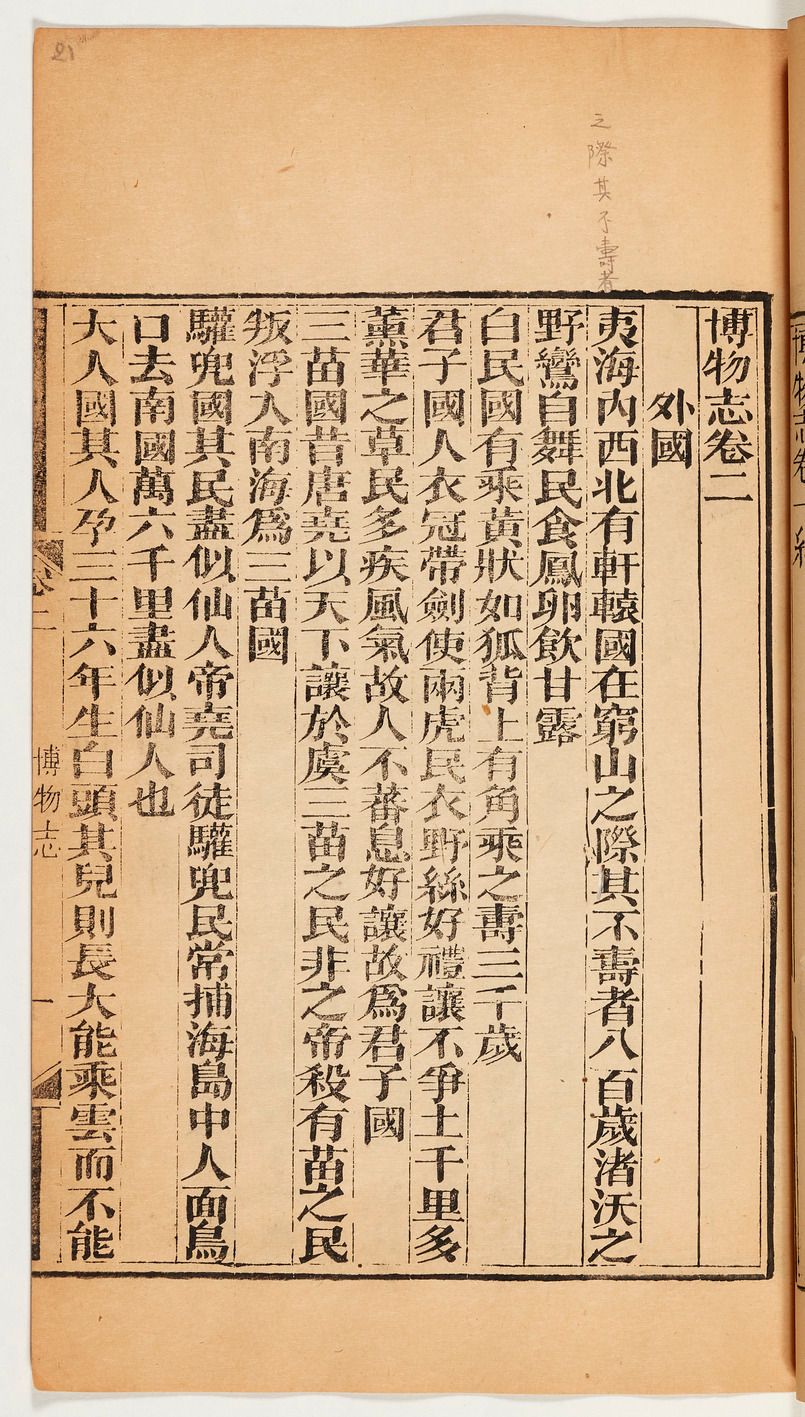 博物志卷二
外國
夷海內西北有軒轅國在窮山之際其不壽者八百歲渚沃之
野鸞自舞民食鳳卵飲甘露
白民國有乘黃狀如狐背上有角乘之壽三千歲
君子國人衣冠帶劍使兩虎民衣野絲好禮讓不爭土千里多
薰華之草民多疾風氣故人不蕃息好讓故爲君子國
三苗國昔唐堯以天下讓於虞三苗之民非之帝殺有苗之民
叛浮入南海爲三苗國
驩兜國其民盡似仙人帝堯司徒驩兜民常捕海島中人面鳥
口去南國萬六千里盡似仙人也
大人國其人孕三十六年生白頭其兒則長大能乘雲而不能
卷二
博物志
一
之際其不壽者
21